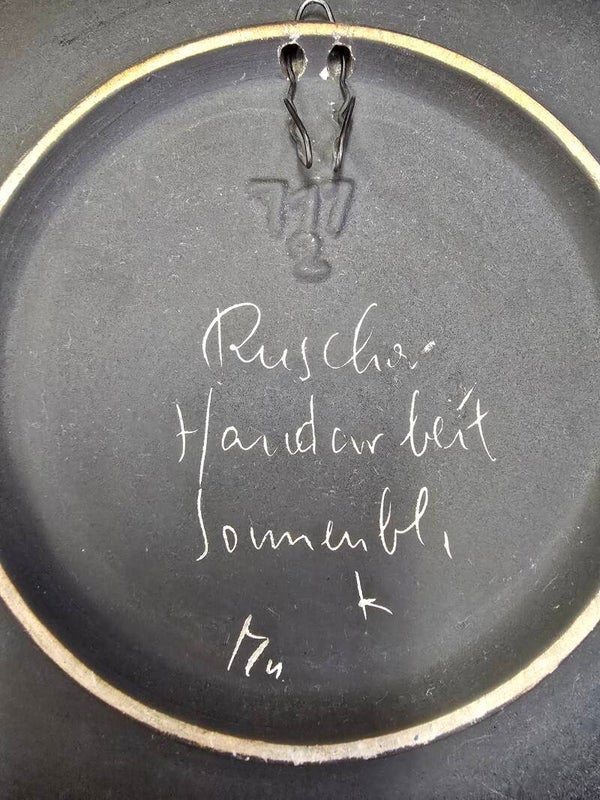 717
2
Ruscha
Handarbeit
Sonnenbl.
k